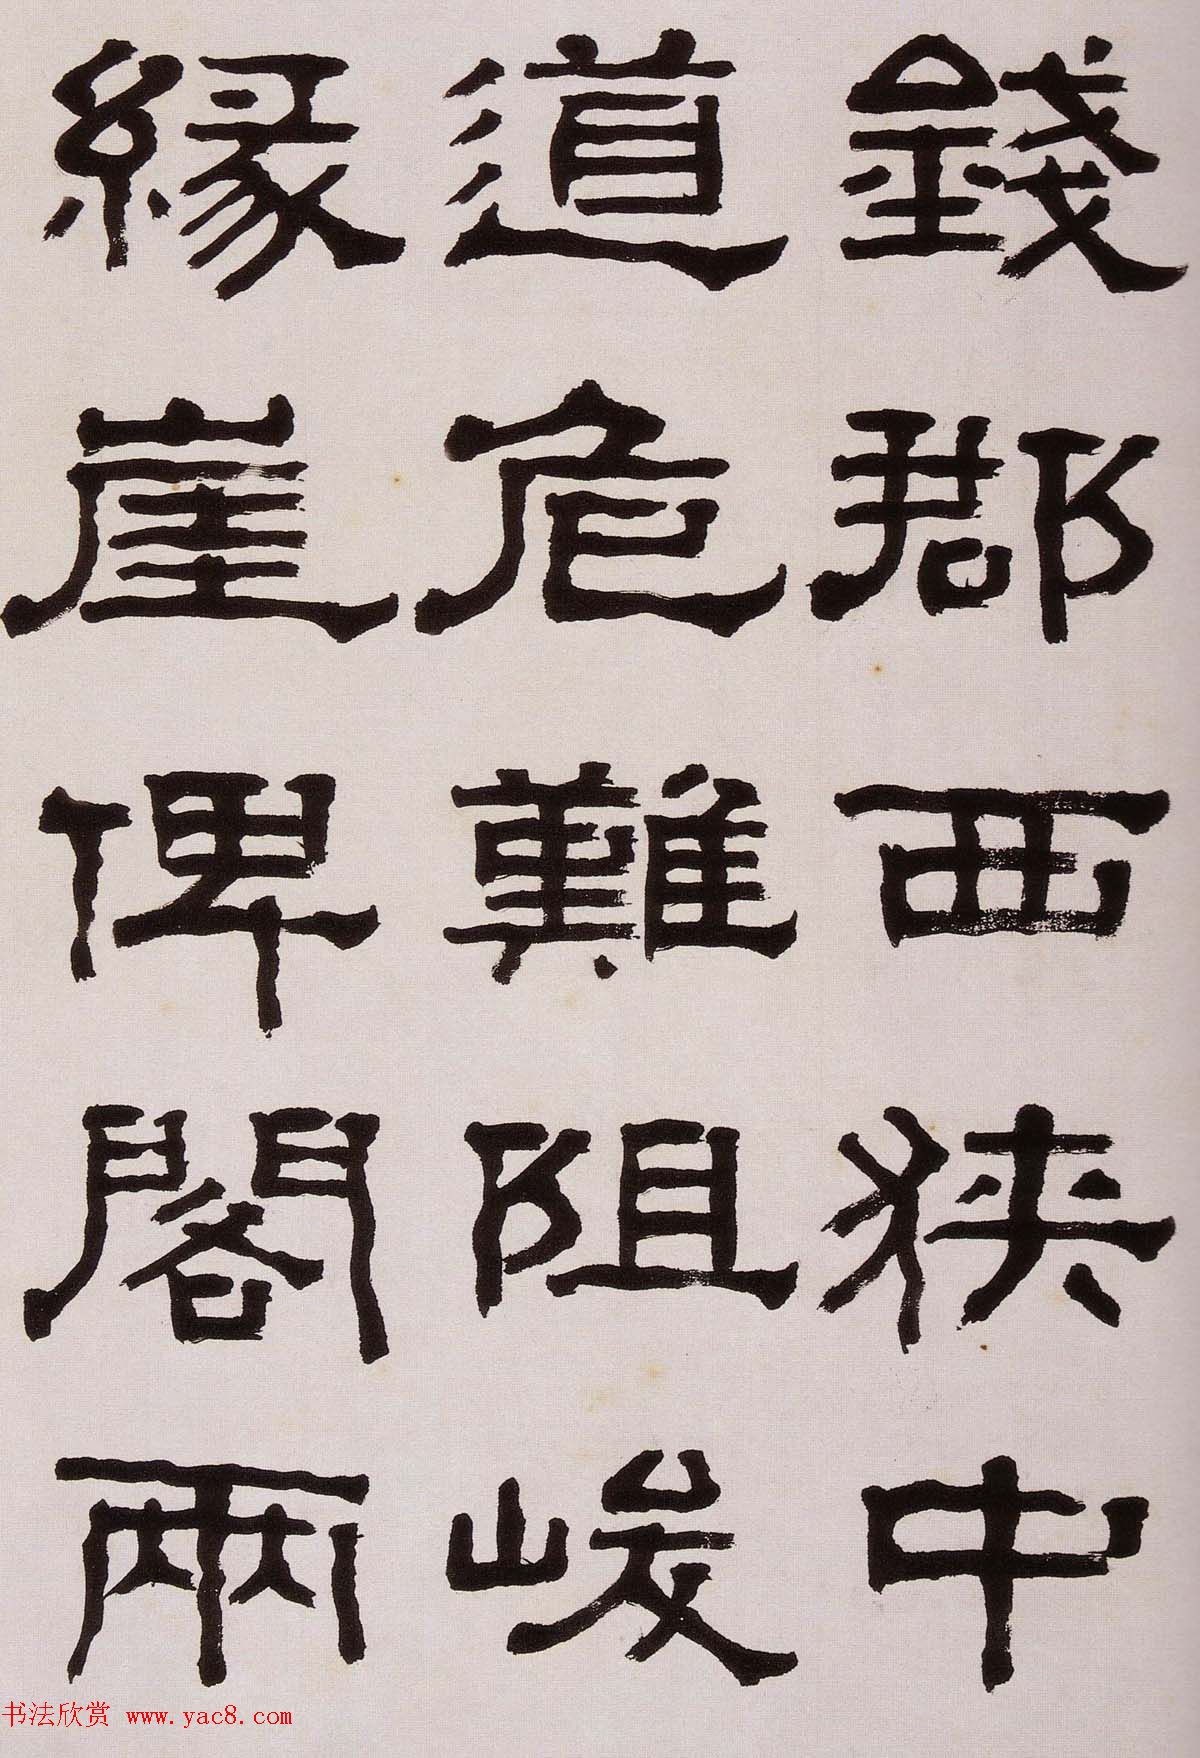 錢郡西狹中
道危難阻峻
緣崖俾閣兩
书法欣赏 www.yac8.com